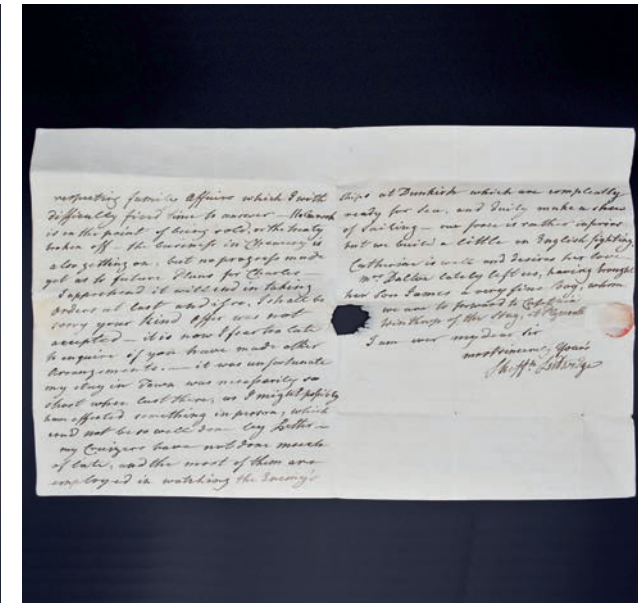 respecting family Affairs which I with
difficulty find time to answer —
is on the point of being sold, or the treaty
broken off — the business in Chancery is
also getting on, but no progress made
yet as to future Plans for Charles —
I apprehend it will end in taking
orders at last and if so, I shall be
sorry your Kind Offer was not
accepted — it is now I fear too late
to enquire if you have made other
Arrangements. — it was unfortunate
my stay in Town was necessarily so
short when last there, as I might possibly
have effected something in person, which
could not be so well done by Letter —
my Cruizers have not done much
of late, and the most of them are
employed in watching the Enemy's
ships at Dunkirk which are compleatly
ready for Sea, and daily make a shew
of Sailing — our force is rather inferior
but we build a little on English fighting
Catherine is well and desires her love
Mrs Dalton lately left us, having brought
her Son James a very fine Boy, whom
we are to forward to Captain
Winthrop of the
I am ever my dear Sir
most sincerely Yours